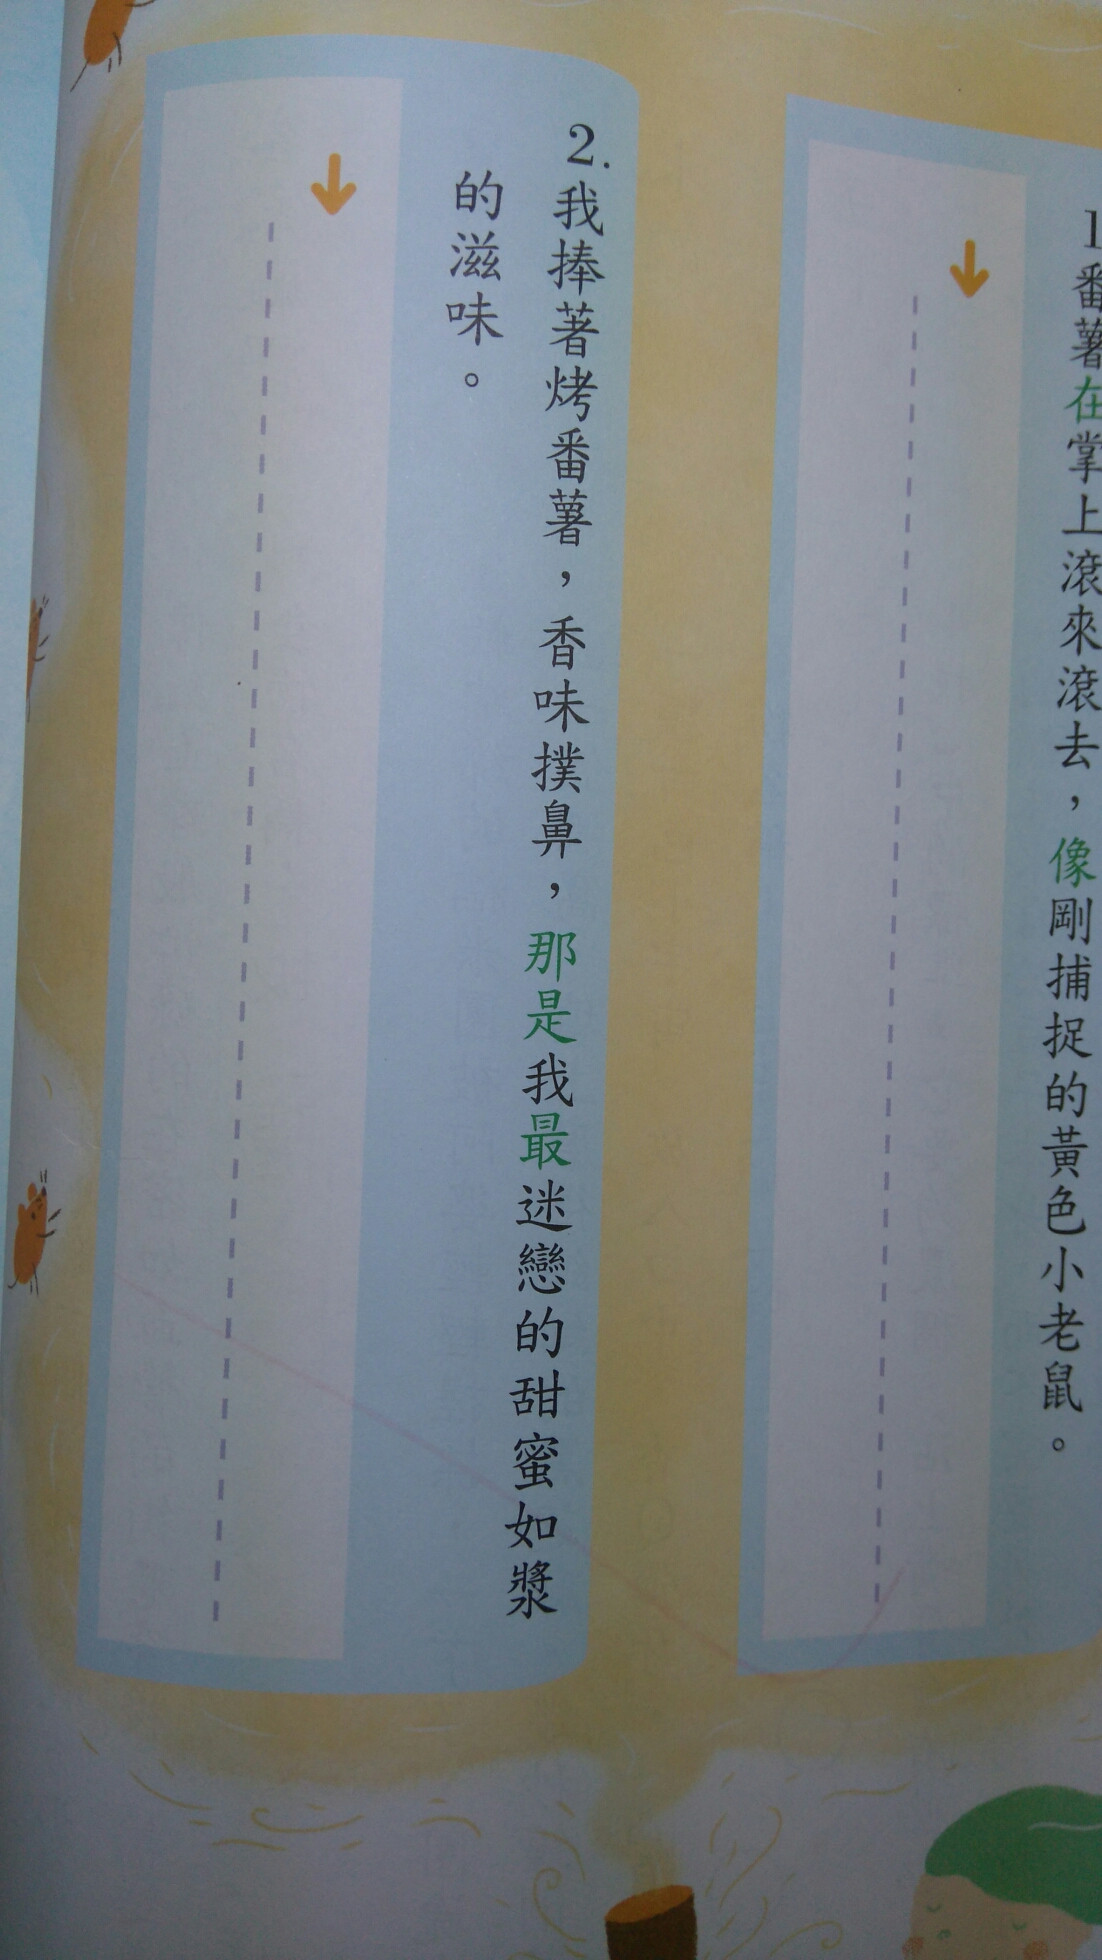 1番薯在掌上滾來滾去，像剛捕捉的黃色小老鼠。
2.我捧著烤番薯，香味撲鼻，那是我最迷戀的甜蜜如漿
的滋味。